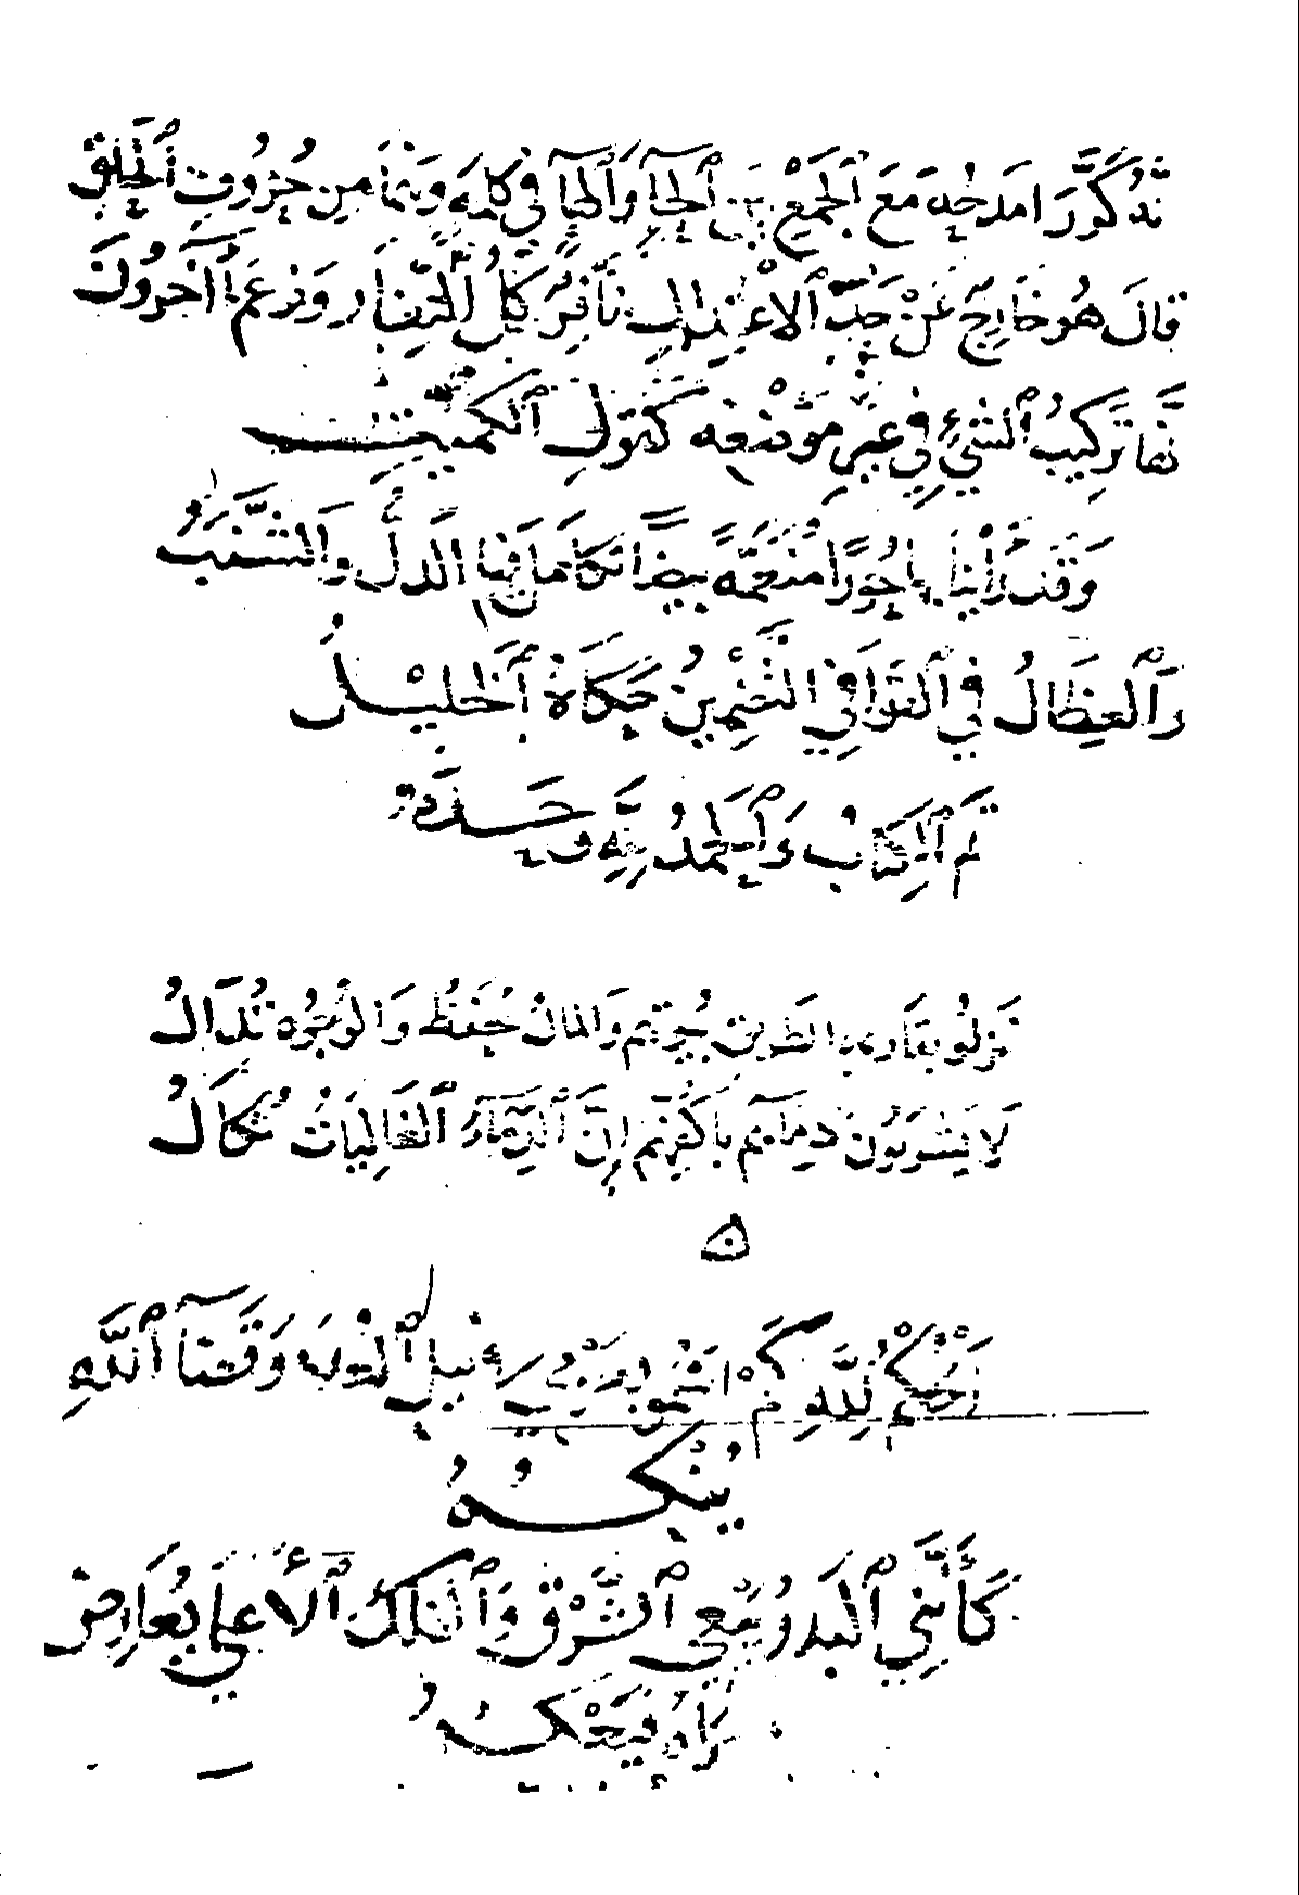 تَّذَكَّرَ امدحْه مَعَ الْجَمْعِ بَيْنَ الْحَاءِ وَالْهَاءِ فِي كَلِمَةٍ وَهُمَا مِن حُرُوفِ الْحَلْقِ
قالَ هُو خَارِج عَنْ حَدّ الاعْتِدَالِ نَافِرٌ كُلَّ النِّفَارِ وَزعَمَ آخَرُونَ
أنّها تَركِيبُ الشَّيْءِ فِي غيرِ مَوْضِعِه كَقَوْلِ الْكُمَيْتِ
وَقَدْ رَأَيْنَا بِهَا حُورًا مُنَعَّمَةً بِيضًا تَكَامَلَ فِيهَا الدَلُّ وَالشَّنَبُ
وَالْعِظَالُ فِي الْقَوَافِي التَّضْمِينُ حَكَاهُ الْخَلِيْلُ
تَم الْكِتَابُ وَالْحَمْدُ لِلَّهِ وَحْدَهُ
نَزلُوا بقارعةِ الطَّريقِ بُيُوتهم وَالمَالُ يُحْفَظُ وَالْوُجُوه تُذَالُ
لَا يَشْرَبُونَ دِمَاءهم بِأَكُفِّهِم إِنَّ الدِّمَاءَ الْغَالِيَاتُ تُكَالُ
كَأَنَّنِي الْبَدْرُ يَبْغِي الشَّرْقَ وَالْفَلَكُ الْأَعْلَى يُعَارِض